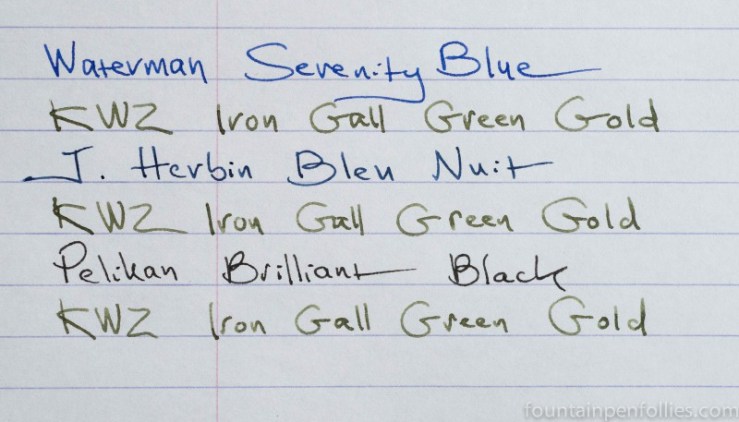 Waterman Serenity Blue
KWZ Iron Gall Green Gold
J. Herbin Bleu Nuit
KWZ Iron Gall Green Gold
Pelikan Brilliant Black
KWZ Iron Gall Green Gold
fountainpenfollies.com